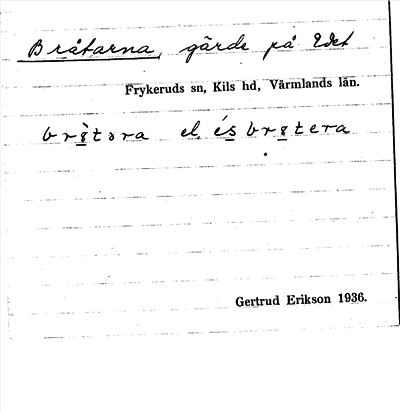 Bråtarna, gärde på Edet
Frykeruds sn, Kils hd, Värmlands län.
br8̀təra el. és br8tera
Gertrud Erikson 1936.